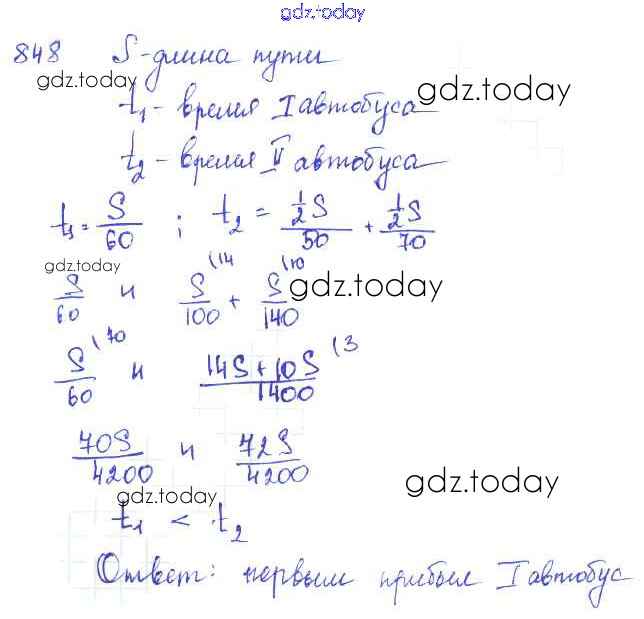 gdz.today
848 S-длина пути
gdz.today
t₁ - время I автобуса
gdz.today
t₂ - время II автобуса
t₁ = S/60 ; t₂ = ½S/50 + ½S/70
gdz.today
S/60 и S/100 (14 + S/140 (10
gdz.today
S/60 (70 и 14S + 10S/1400 (3
70S/4200 и 72S/4200
gdz.today
gdz.today
t₁ < t₂
Ответ: первым прибыл I автобус